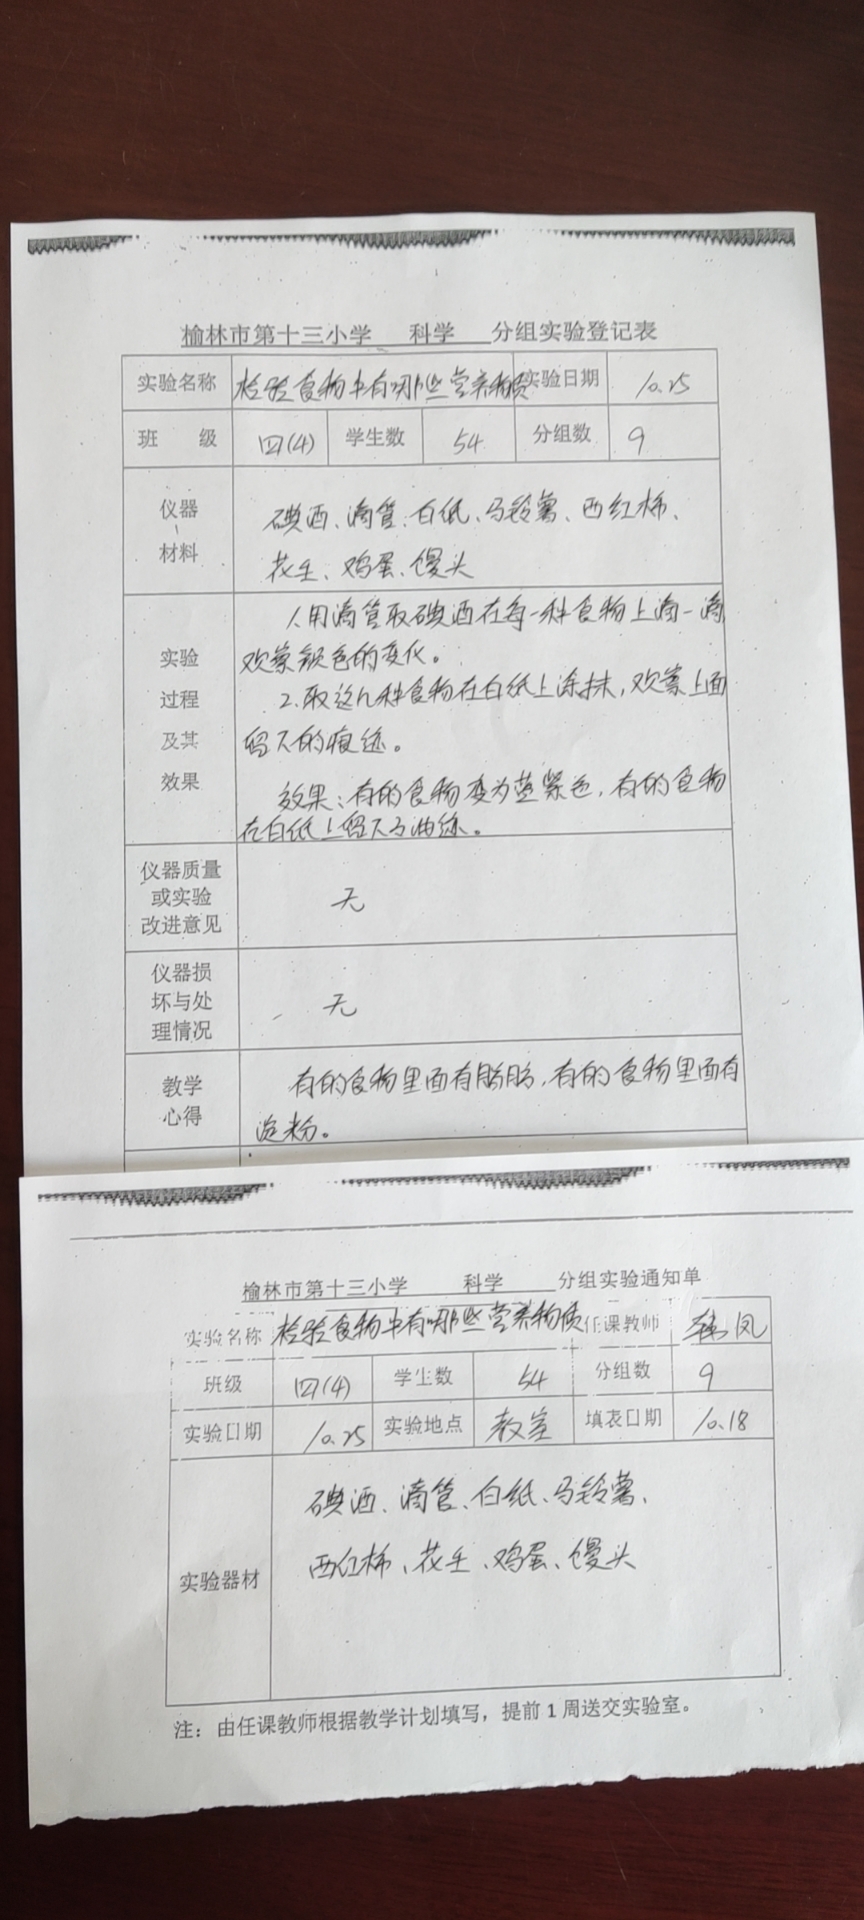 榆林市第十三小学 科学 分组实验登记表
实验名称 检验食物中有哪些营养物质 实验日期 10.25
班 级 四(4) 学生数 54 分组数 9
仪器、材料 碘酒、滴管、白纸、马铃薯、西红柿、
花生、鸡蛋、馒头
实验过程及其效果 1.用滴管取碘酒在每一种食物上滴一滴
观察颜色的变化。
2.取这几种食物在白纸上涂抹,观察上面
留下的痕迹。
效果:有的食物变为蓝紫色,有的食物
在白纸上留下了油迹。
仪器质量或实验改进意见 无
仪器损坏与处理情况 无
教学心得 有的食物里面有脂肪,有的食物里面有
淀粉。
榆林市第十三小学 科学 分组实验通知单
实验名称 检验食物中有哪些营养物质 任课教师 韩凤
班级 四(4) 学生数 54 分组数 9
实验日期 10.25 实验地点 教室 填表日期 10.18
实验器材 碘酒、滴管、白纸、马铃薯、
西红柿、花生、鸡蛋、馒头
注:由任课教师根据教学计划填写,提前1周送交实验室。